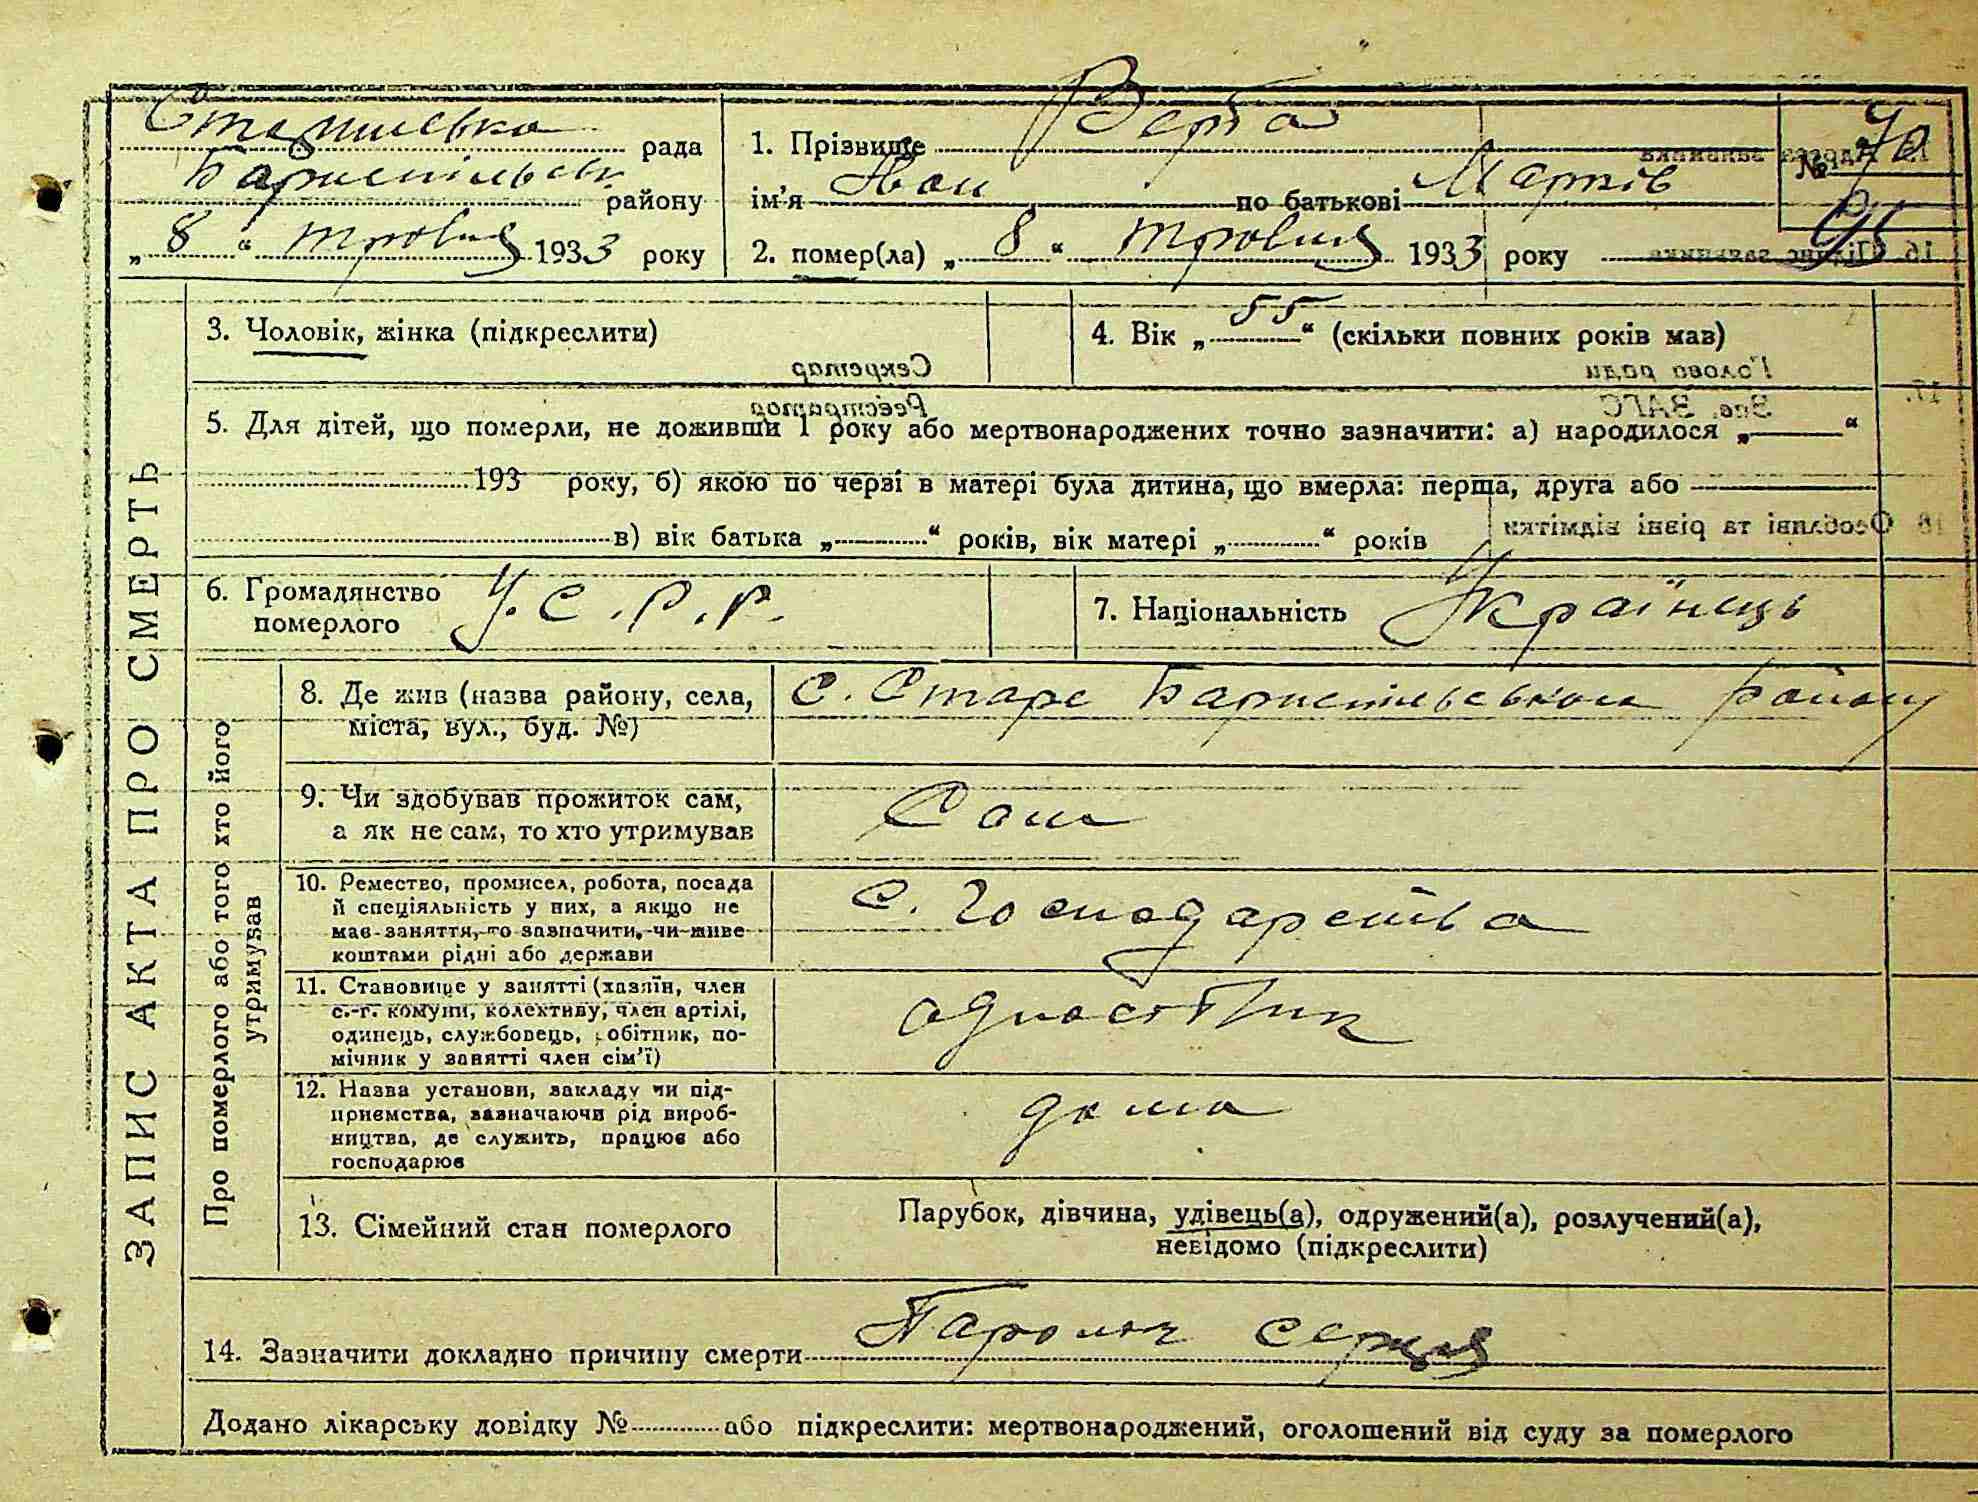 Старинська рада
Бориспільськ району
„ 8 “ травня 1933 року
1. Прізвище Верба
ім’я Іван по батькові Марків
2. помер(ла) „ 8 “ травня 1933 року
№ 70
95
3. Чоловік, жінка (підкреслити)
4. Вік „ 55 “ (скільки повних років мав)
5. Для дітей, що померли, не доживши 1 року або мертвонароджених точно зазначити: а) народилося „ “
193 року, б) якою по черзі в матері була дитина, що вмерла: перша, друга або
в) вік батька „ “ років, вік матері „ “ років
6. Громадянство
померлого У.С.Р.Р.
7. Національність Українець
ЗАПИС АКТА ПРО СМЕРТЬ
Про померлого або того хто його
утримував
8. Де жив (назва району, села,
міста, вул., буд. №)
с. Старе Бориспільського району
9. Чи здобував прожиток сам,
а як не сам, то хто утримував
Сам
10. Ремество, промисел, робота, посада
й спеціяльність у них, а якщо не
має заняття, то зазначити, чи живе
коштами рідні або держави
С. Господарства
11. Становище у занятті (хазяїн, член
с.-г. комуни, колективу, член артілі,
одинець, службовець, робітник, по-
мічник у занятті член сім’ї)
одноосібник
12. Назва установи, закладу чи під-
приємства, зазначаючи рід вироб-
ництва, де служить, працює або
господарює
дома
13. Сімейний стан померлого
Парубок, дівчина, удівець(а), одружений(а), розлучений(а),
невідомо (підкреслити)
14. Зазначити докладно причину смерти Параліч серця
Додано лікарську довідку № або підкреслити: мертвонароджений, оголошений від суду за померлого